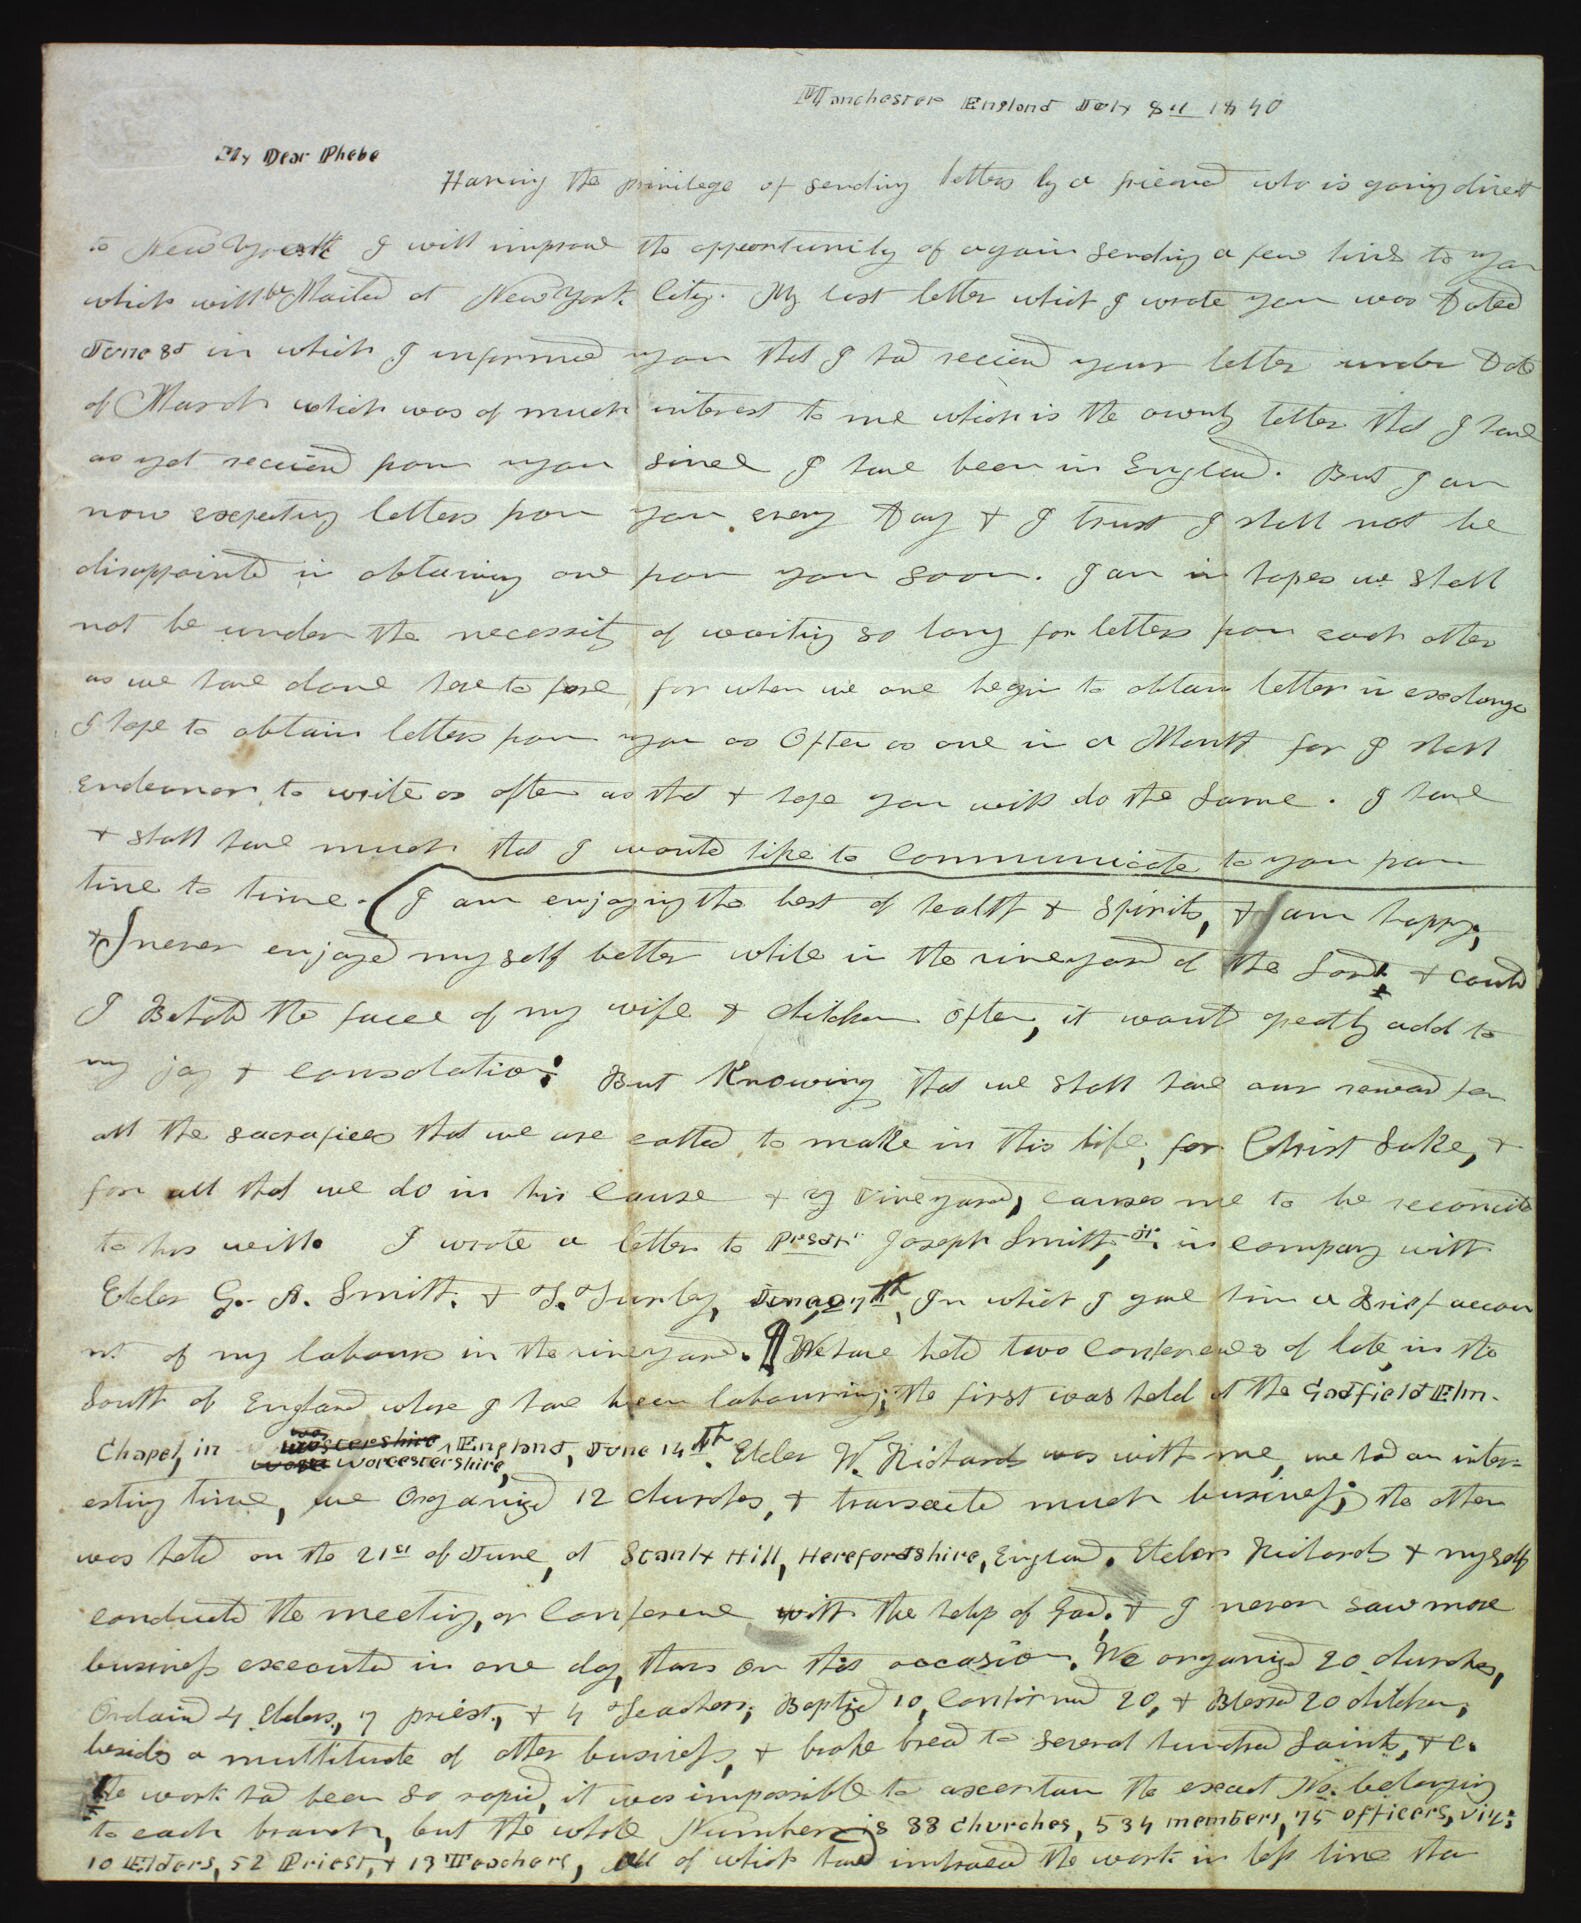 Manchester England July 8th 1840
My Dear Phebe
Having the privilege of sending letters by a friend who is going direct
to New York I will improve the opportunity of again sending a few lines to you
which will be Mailed at New York City. My last letter which I wrote you was Dated
June 8d in which I informed you that I had recieved your letter under Date
of March which was of much interest to me which is the ownly letter that I have
as yet recieved from you since I have been in England. But I am
now expecting letters from you every Day & I trust I shall not be
disappointed in obtaining one from you soon. I am in hopes we shall
not be under the necessity of waiting so long for letters from each other
as we have done here to fore for when we one begin to obtain letter in exchange
I hope to obtain letters from you as Often as one in a Month for I shall
endeavor to write as often as that & hope you will do the same. I have
& shall have much that I would like to communicate to you from
time to time. I am enjoying the best of health & Spirits, & am happy,
& I never enjoyed myself better while in the vineyard of the Lord; & could
I Behold the face of my wife & children often, it would greatly add to
my joy & consolation: But Knowing that we shall have our reward for
all the sacrafices that we are called to make in this life, for Christ Sake, &
for all that we do in his cause & vineyard, causes me to be reconciled
to his will. I wrote a letter to Presdt. Joseph Smith, jr. in company with
Elder G. A. Smith, & T. Turley, June 27th, In which I gave him a Brief accou
nt of my labours in the vineyard. ¶ We have held two conferences of late, in the
South of England where I have been labouring; the first was held at the Gadfield Elm
Chapel, in Worcestershire, England, June 14th. Elder W. Richards was with me, we had an inter=
esting time, we Organized 12 churches, & transacted much business; the other
was held on the 21st of June, at Stanly Hill, Herefordshire, England. Elders Richards & myself
conducted the meeting, or Conference with the help of God. & I never saw more
business executed in one day, than on this occasion. We organized 20 churches,
Ordained 4 Elders, 7 priest, & 4 Teachers; Baptized 10, Confirmed 20, & Blessed 20 children;
besides a multitude of other business, & broke bread to several hundred Saints, &c.
The work had been so rapid, it was impossible to ascertain the exact No. belonging
to each branch, but the whole Number is 33 churches, 534 members, 75 officers, viz:
10 Elders, 52 Priest, & 13 Teachers, all of which have imbraced the work in less time than